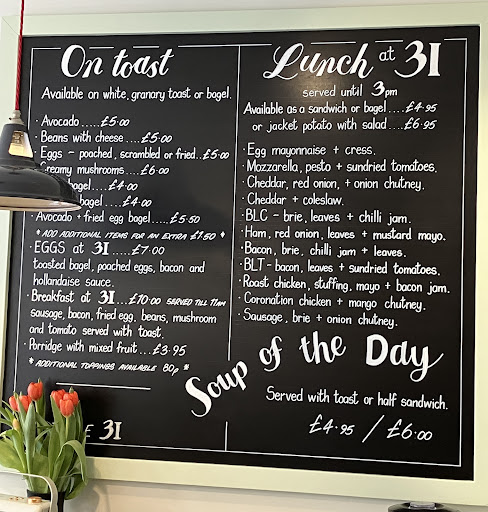 On toast
Available on white, granary toast or bagel.
· Avocado.....£5.00
· Beans with cheese....£5.00
· Eggs - poached, scrambled or fried..£5.00
Creamy mushrooms....£6.00
bagel....£4.00
bagel....£4.00
· Avocado + fried egg bagel....£5.50
* ADD ADDITIONAL ITEMS FOR AN EXTRA £1.50 *
· EGGS at 31.....£7.00
toasted bagel, poached eggs, bacon and
hollandaise sauce.
· Breakfast at 31...£10.00 SERVED TILL 11AM
sausage, bacon, fried egg, beans, mushroom
and tomato served with toast.
· Porridge with mixed fruit...£3.95
* ADDITIONAL TOPPINGS AVAILABLE 80p *
31
Lunch at 31
served until 3pm
Available as a sandwich or bagel....£4.95
or jacket potato with salad....£6.95
· Egg mayonnaise + cress.
· Mozzarella, pesto + sundried tomatoes.
· Cheddar, red onion, + onion chutney.
· Cheddar + coleslaw.
· BLC - brie, leaves + chilli jam.
· Ham, red onion, leaves + mustard mayo.
· Bacon, brie, chilli jam + leaves.
· BLT - bacon, leaves + sundried tomatoes.
· Roast chicken, stuffing, mayo + bacon jam.
· Coronation chicken + mango chutney.
· Sausage, brie + onion chutney.
Soup of the Day
Served with toast or half sandwich.
£4.95 / £6.00